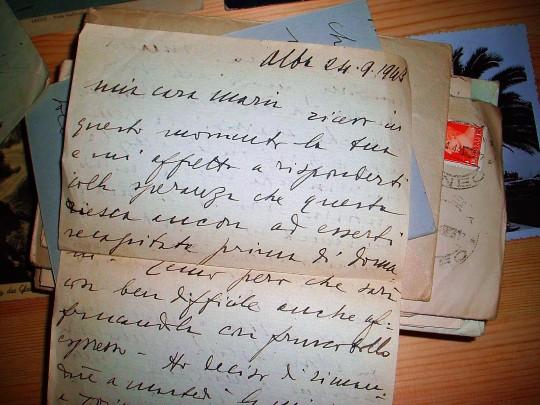 Alba 24.9.1943
mia cara Maria ricevo in
questo momento la tua
e mi affretto a risponderti
colla speranza che questa
riesca ancora ad esserti
recapitata prima di doma
ni. Temo però che sarà
cosa ben difficile anche af-
francandola con francobollo
espresso - Ho deciso di riman-
a martedì